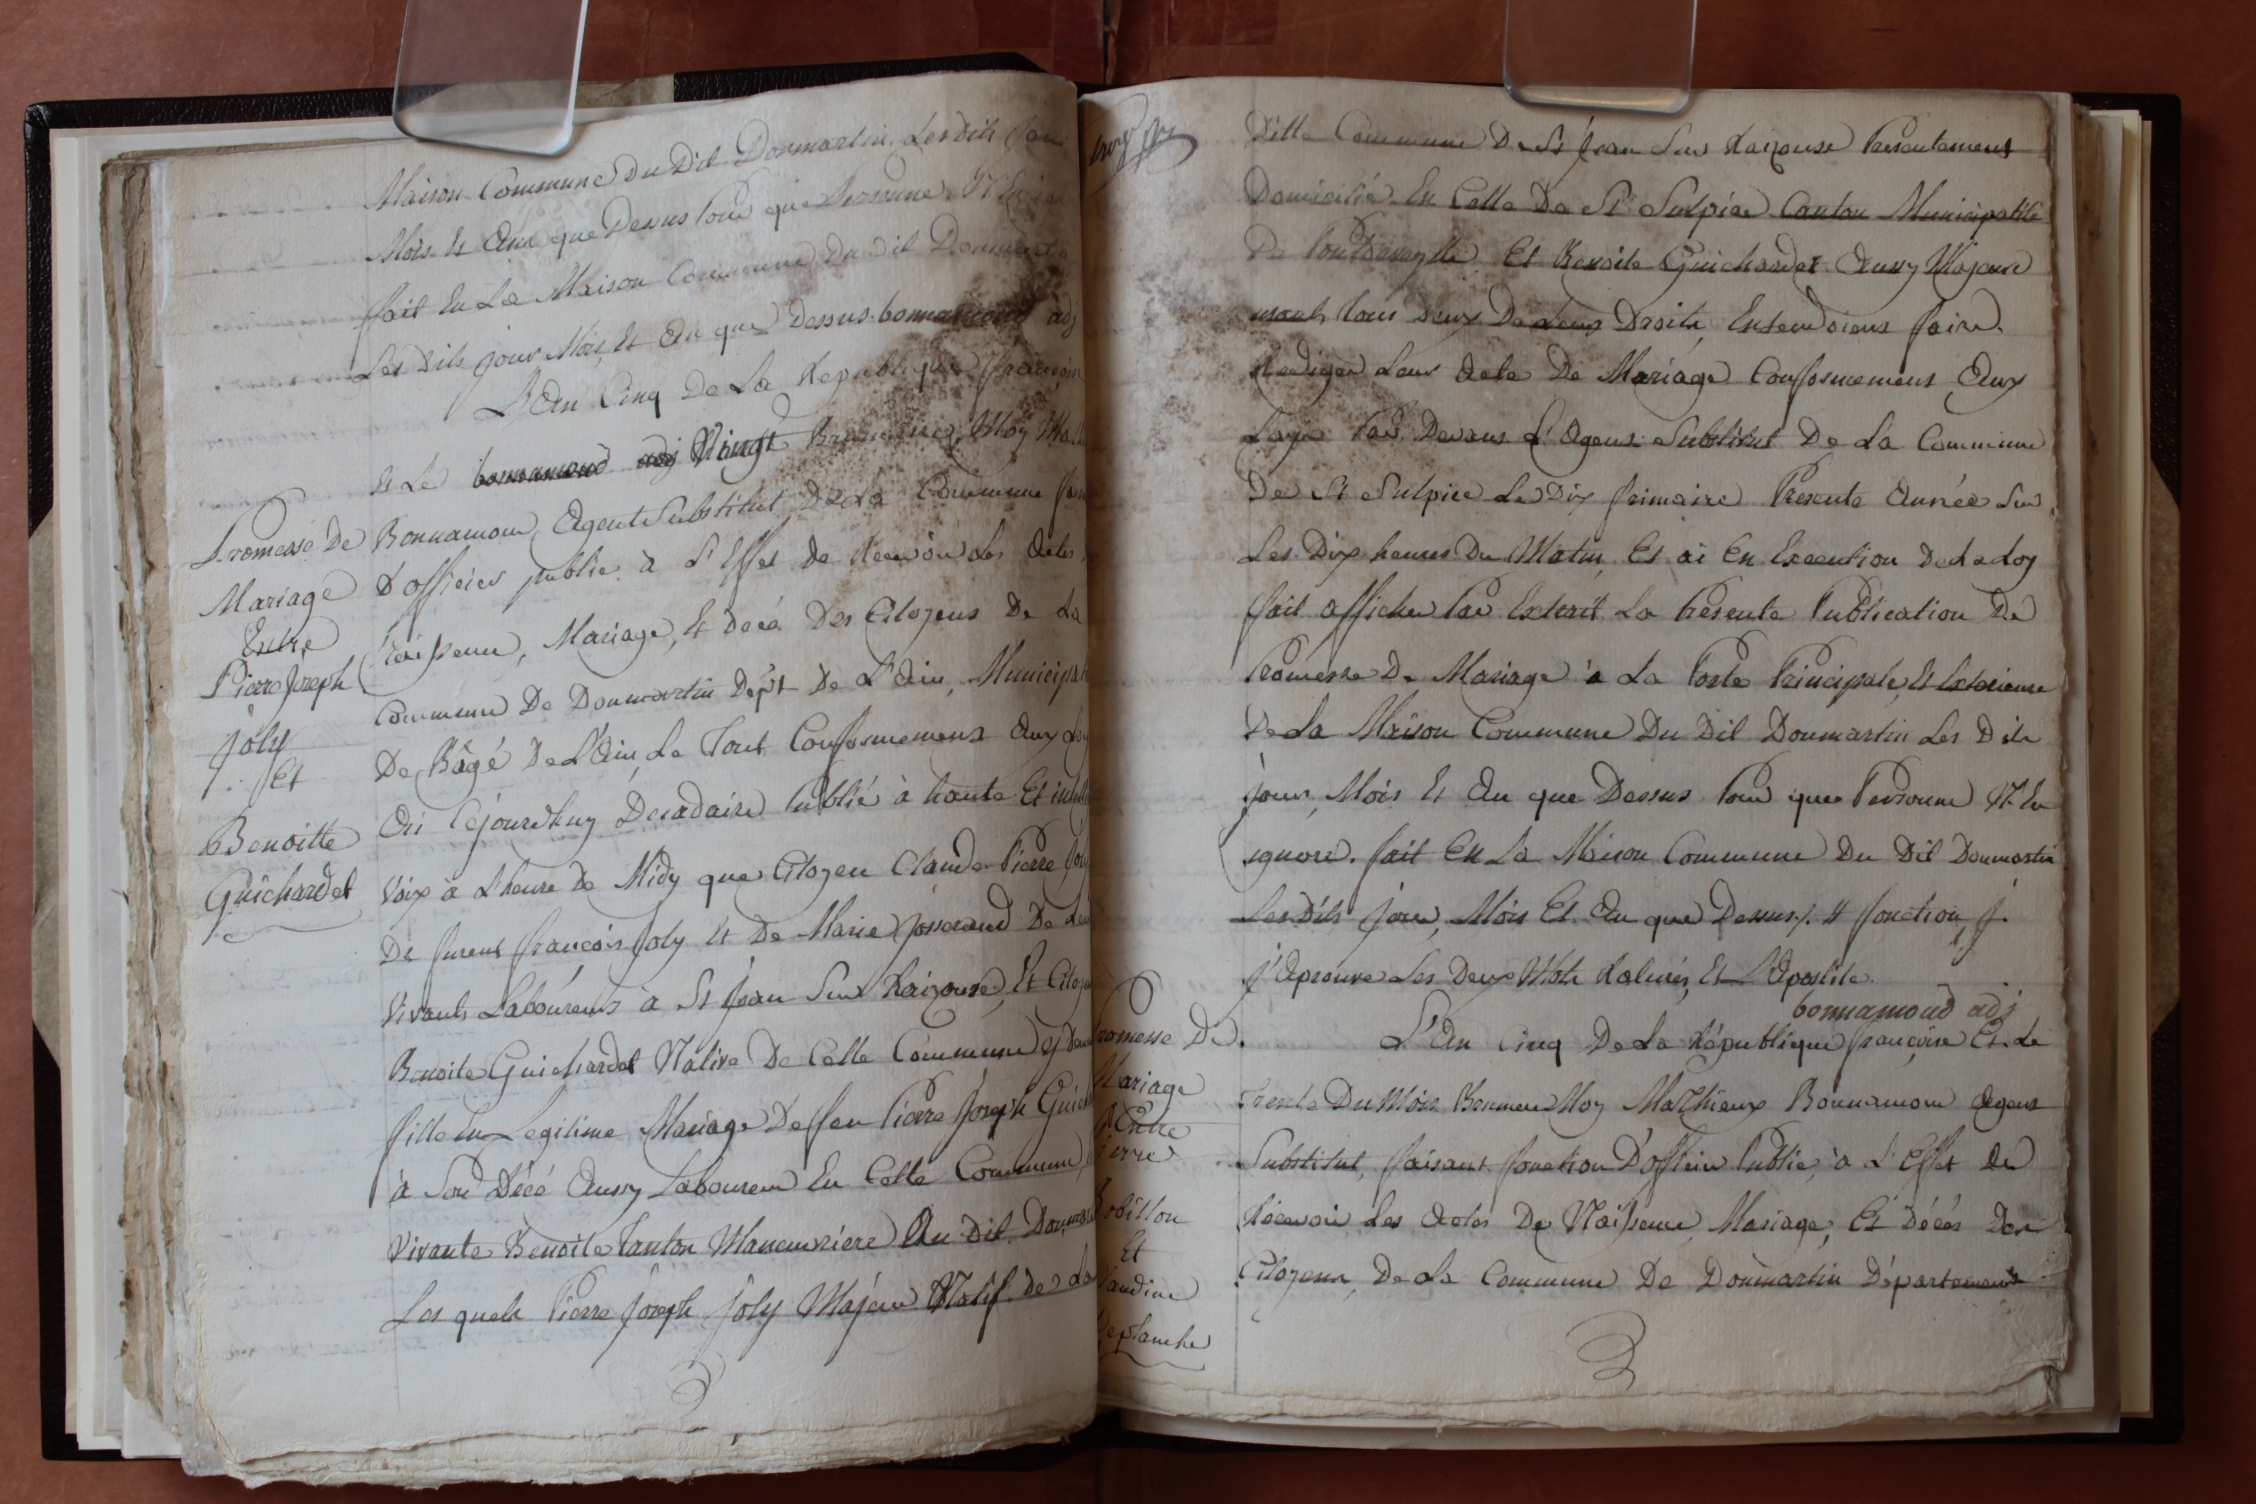 Maison Commune Du Dit Donmartin Les dits jour
Mois Et An que Dessus Pour que Personne N'En
fait En La Maison Commune Du dit Donmartin
Les Dits jour Mois, Et An que Dessus. bonnamour adj
L'An Cinq De La Republique françoise
Et Le bonnamoud adj Vingt Brumaire, Moy Math
Promesse De
Mariage
Entre
Pierre Joseph
joly
Et
Benoitte
Guichardet
Bonnamour, Agent Substitut De La Commune
D'officier public à L'Effet de Recevoir Les Actes
Naissence, Mariage, Et Décé Des Citoyens De La
Commune De Donmartin Dép't De L'Ain, Municipal
De Bâgé De L'Ain, Le Tout Conformement Aux
Ai Cejourdhuy Decadaire Publié à haute Et
Voix à L'heure De Midy que Citoyen Claude Pierre
De furent françois Joly Et De Marie Josserand De
Vivants Laboureurs à St jean Sur Raizouse, Et
Benoite Guichardet Native De Celle Commune Et
fille En Legitime Mariage De feu Pierre Joseph
à Son Décé Aussy Laboureur En Celle Commune
Vivante Benoite Tanton Manouvriere Au Dit
Les quels Pierre Joseph joly Majeur Natif de La
Ditte Commune De St Jean Sur Raizouse Presentement
Domicilié En Celle De St Sulpice Canton Municipalité
De Et Benoite Guichardet Aussy Majeure
tous Deux De Leurs Droits, Entendoient faire
Rediger Leur Acte De Mariage Conformement Aux
Loyx Par Devant L'Agent Substitut De La Commune
De St Sulpice Le Dix frimaire Presente Année Sur
Les Dix heures Du Matin, Et ai En Execution De La Loy
fait afficher Par Extrait La Présente Publication De
Promesse De Mariage à La Porte Principale, Et Exterieure
De La Maison Commune Du Dit Donmartin Les Dits
jour, Mois Et An que Dessus Pour que Personne N'En
ignore. fait En La Maison Commune Du Dit Donmartin
Les Dits Jour, Mois Et An que Dessus /. # fonction, J.
J'Aprouve Les Deux Mots Raturés, Et L'Apostile
bonnamoud adj
Promesse De
Mariage
Entre
Pierre
Robillon
Et
Claudine
Deplanche
L'An Cinq De La République françoise Et Le
Trente Du Mois Moy Mathieux Bonnamour Agent
Substitut, faisant fonction D'officier Public, à L'Effet De
Recevoir Les Actes De Naissence, Mariage, Et Décés Des
Citoyens De La Commune De Donmartin Département